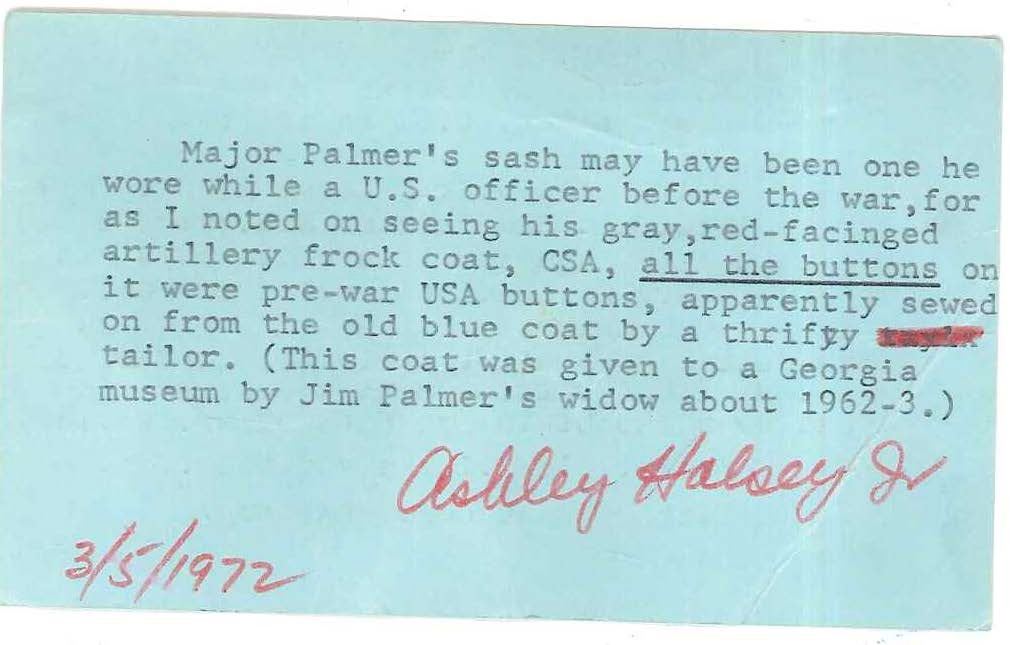 Major Palmer's sash may have been one he
wore while a U.S. officer before the war,for
as I noted on seeing his gray,red-facinged
artillery frock coat, CSA, all the buttons on
it were pre-war USA buttons, apparently sewed
on from the old blue coat by a thrifty
tailor. (This coat was given to a Georgia
museum by Jim Palmer's widow about 1962-3.)
Ashley Halsey Jr
3/5/1972